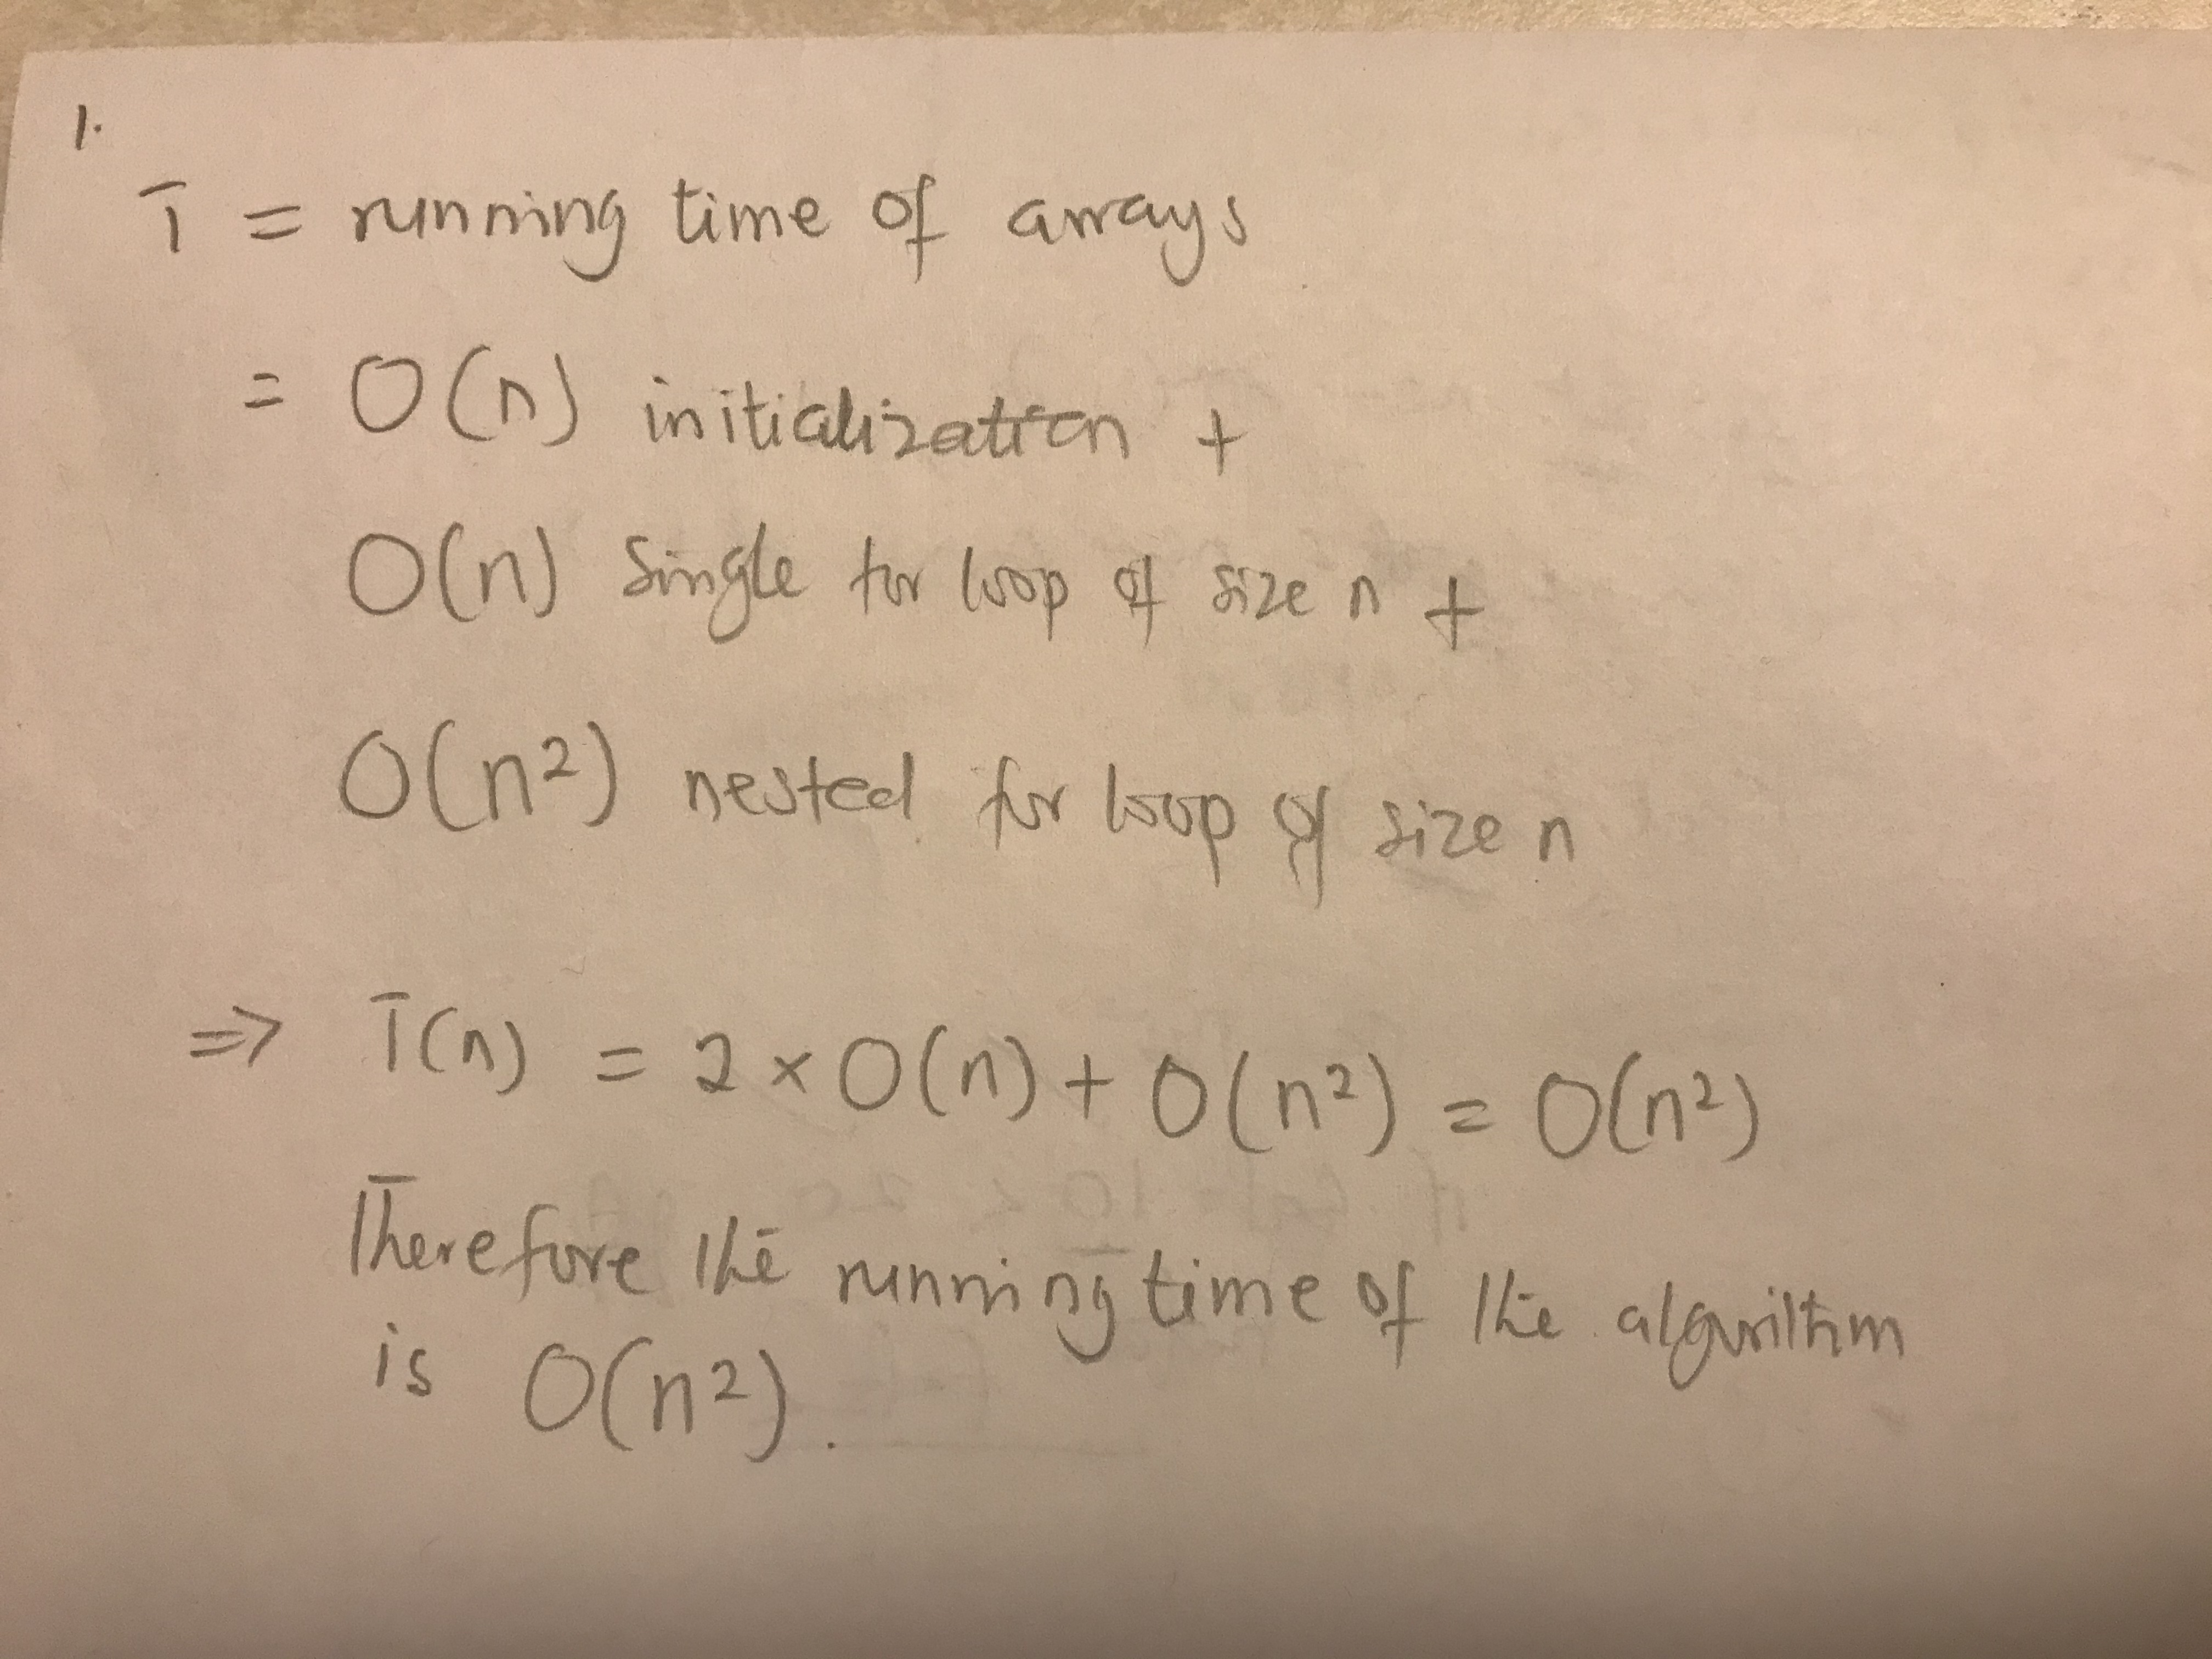 1.
T = running time of arrays
= O(n) initialization +
O(n) Single for loop of size n +
O(n²) nested for loop of size n
⇒ T(n) = 2 × O(n) + O(n²) = O(n²)
Therefore the running time of the algorithm
is O(n²).